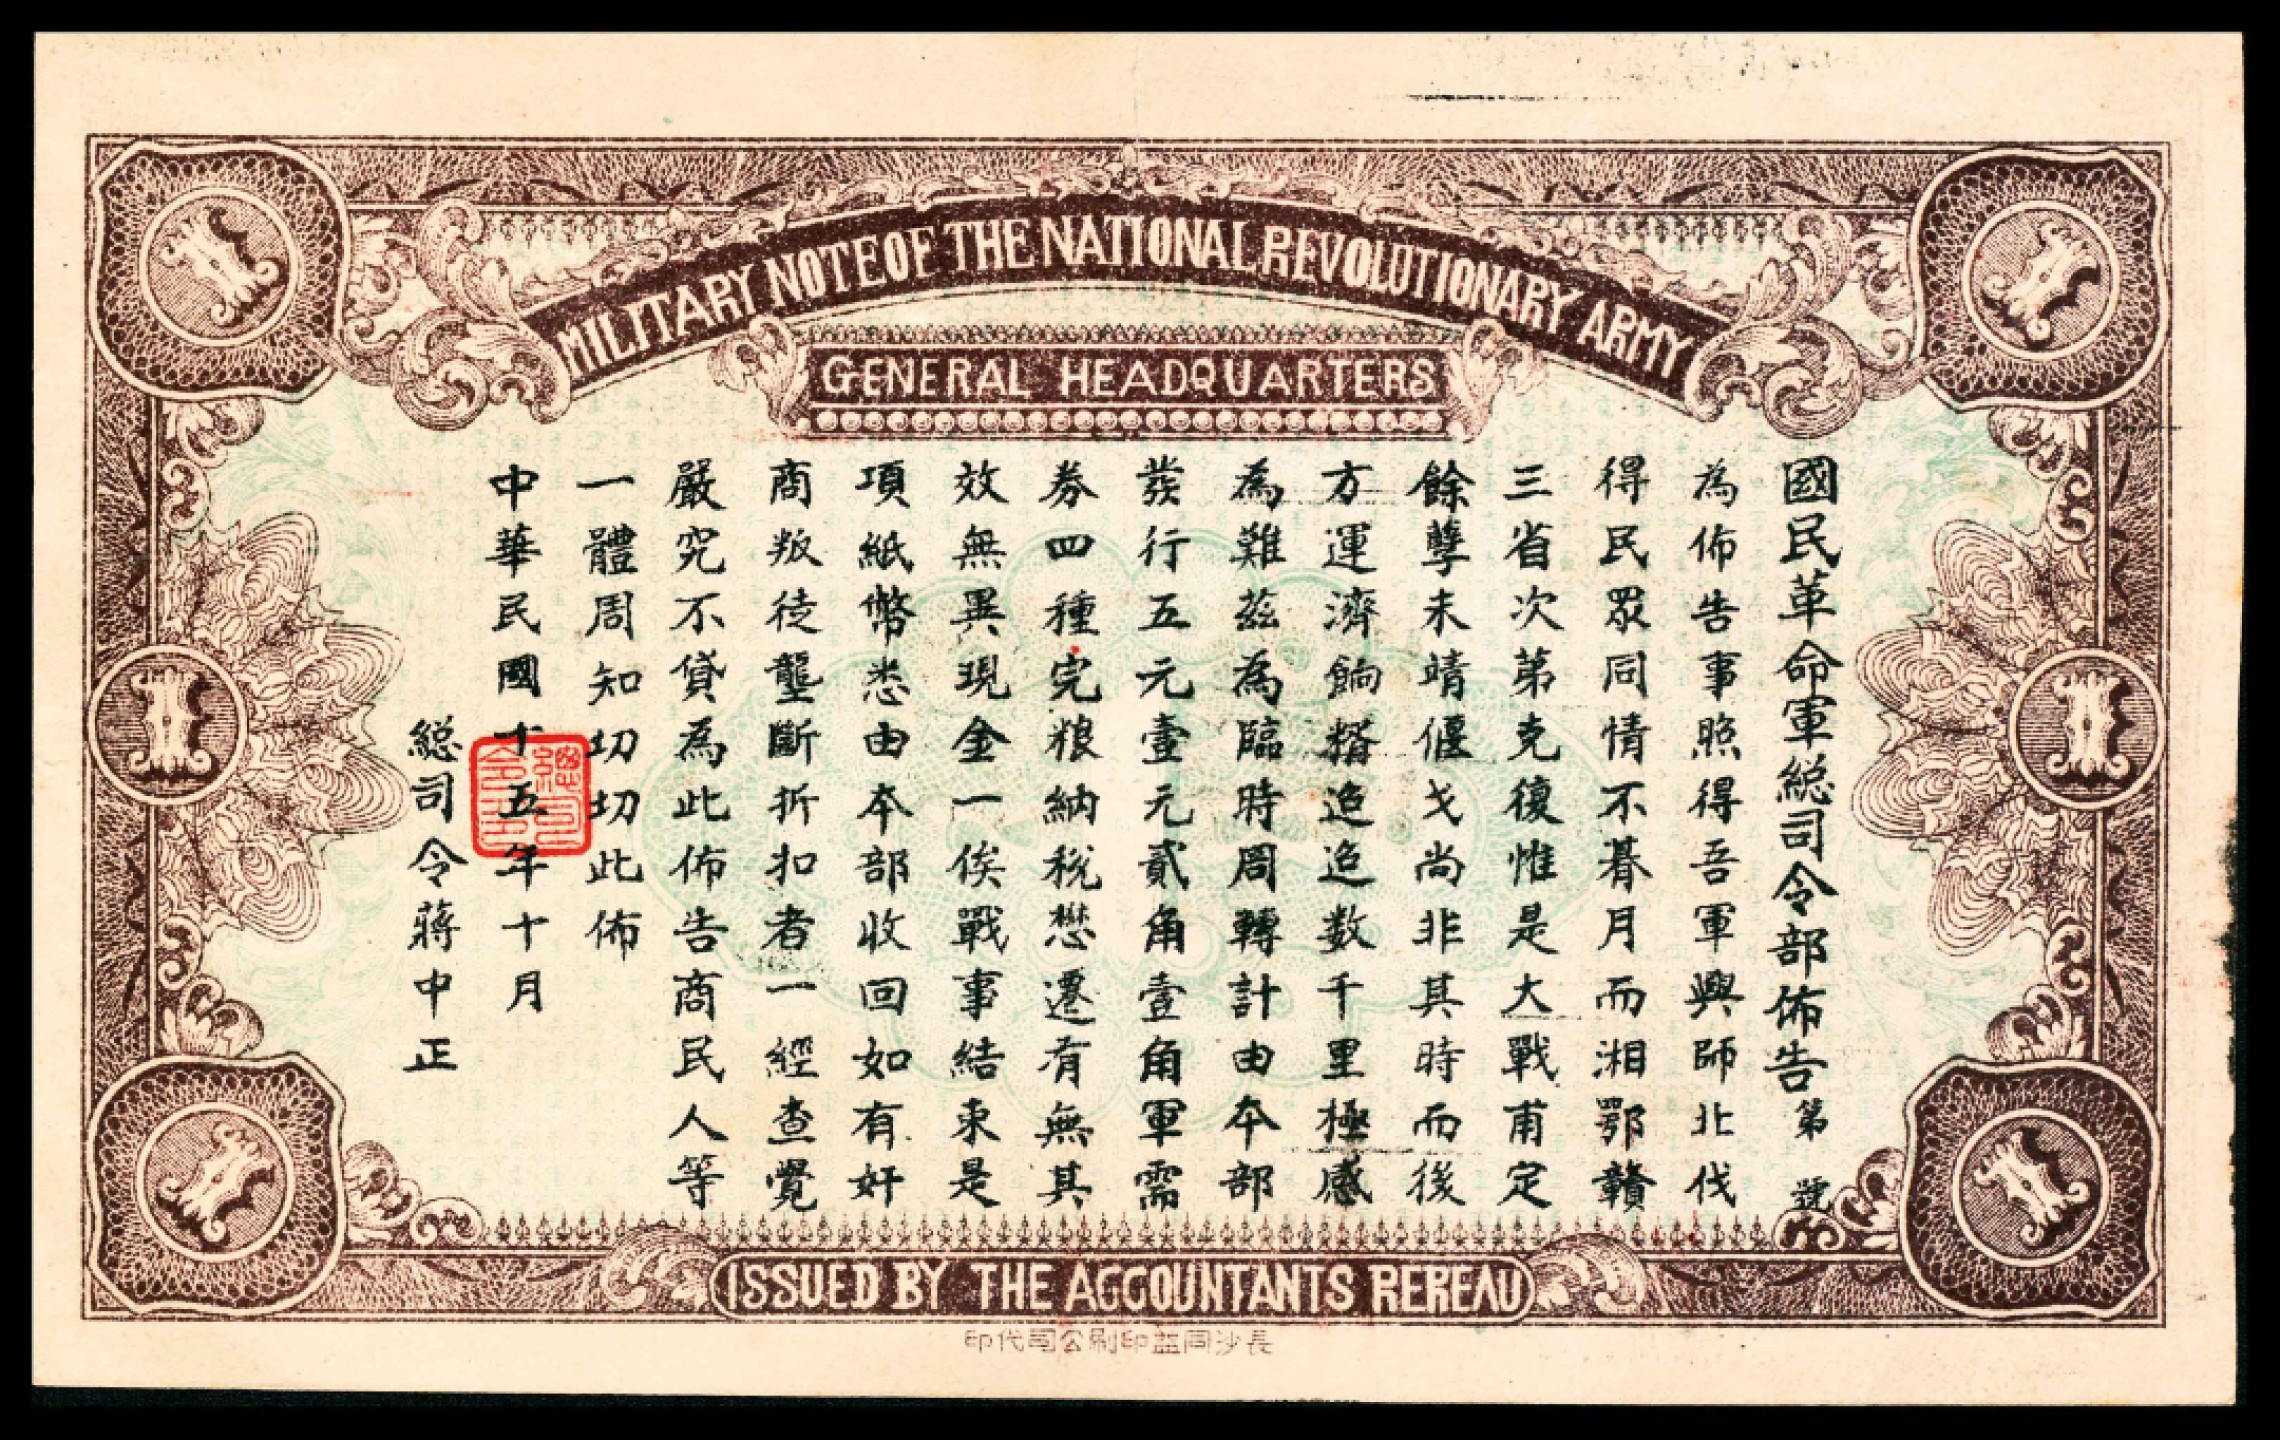 MILITARY NOTE OF THE NATIONAL REVOLUTIONARY ARMY
GENERAL HEADQUARTERS
國民革命軍総司令部佈告 第 號
為佈告事照得吾軍興師北伐
得民眾同情不朞月而湘鄂贛
三省次第克復惟是大戰甫定
餘孽未靖偃戈尚非其時而後
方運濟餉糈迢迢数千里極感
為難茲為臨時周轉計由本部
發行五元壹元貳角壹角軍需
券四種完粮納稅懋遷有無其
效無異現金一俟戰事結束是
項紙幣悉由本部收回如有奸
商叛徒壟斷折扣者一經查覺
嚴究不貸為此佈告商民人等
一體周知切切此佈
中華民國十五年十月
総司令蔣中正
總司令印
1
1
1
1
1
1
ISSUED BY THE ACCOUNTANTS REREAU
長沙同益印刷公司代印